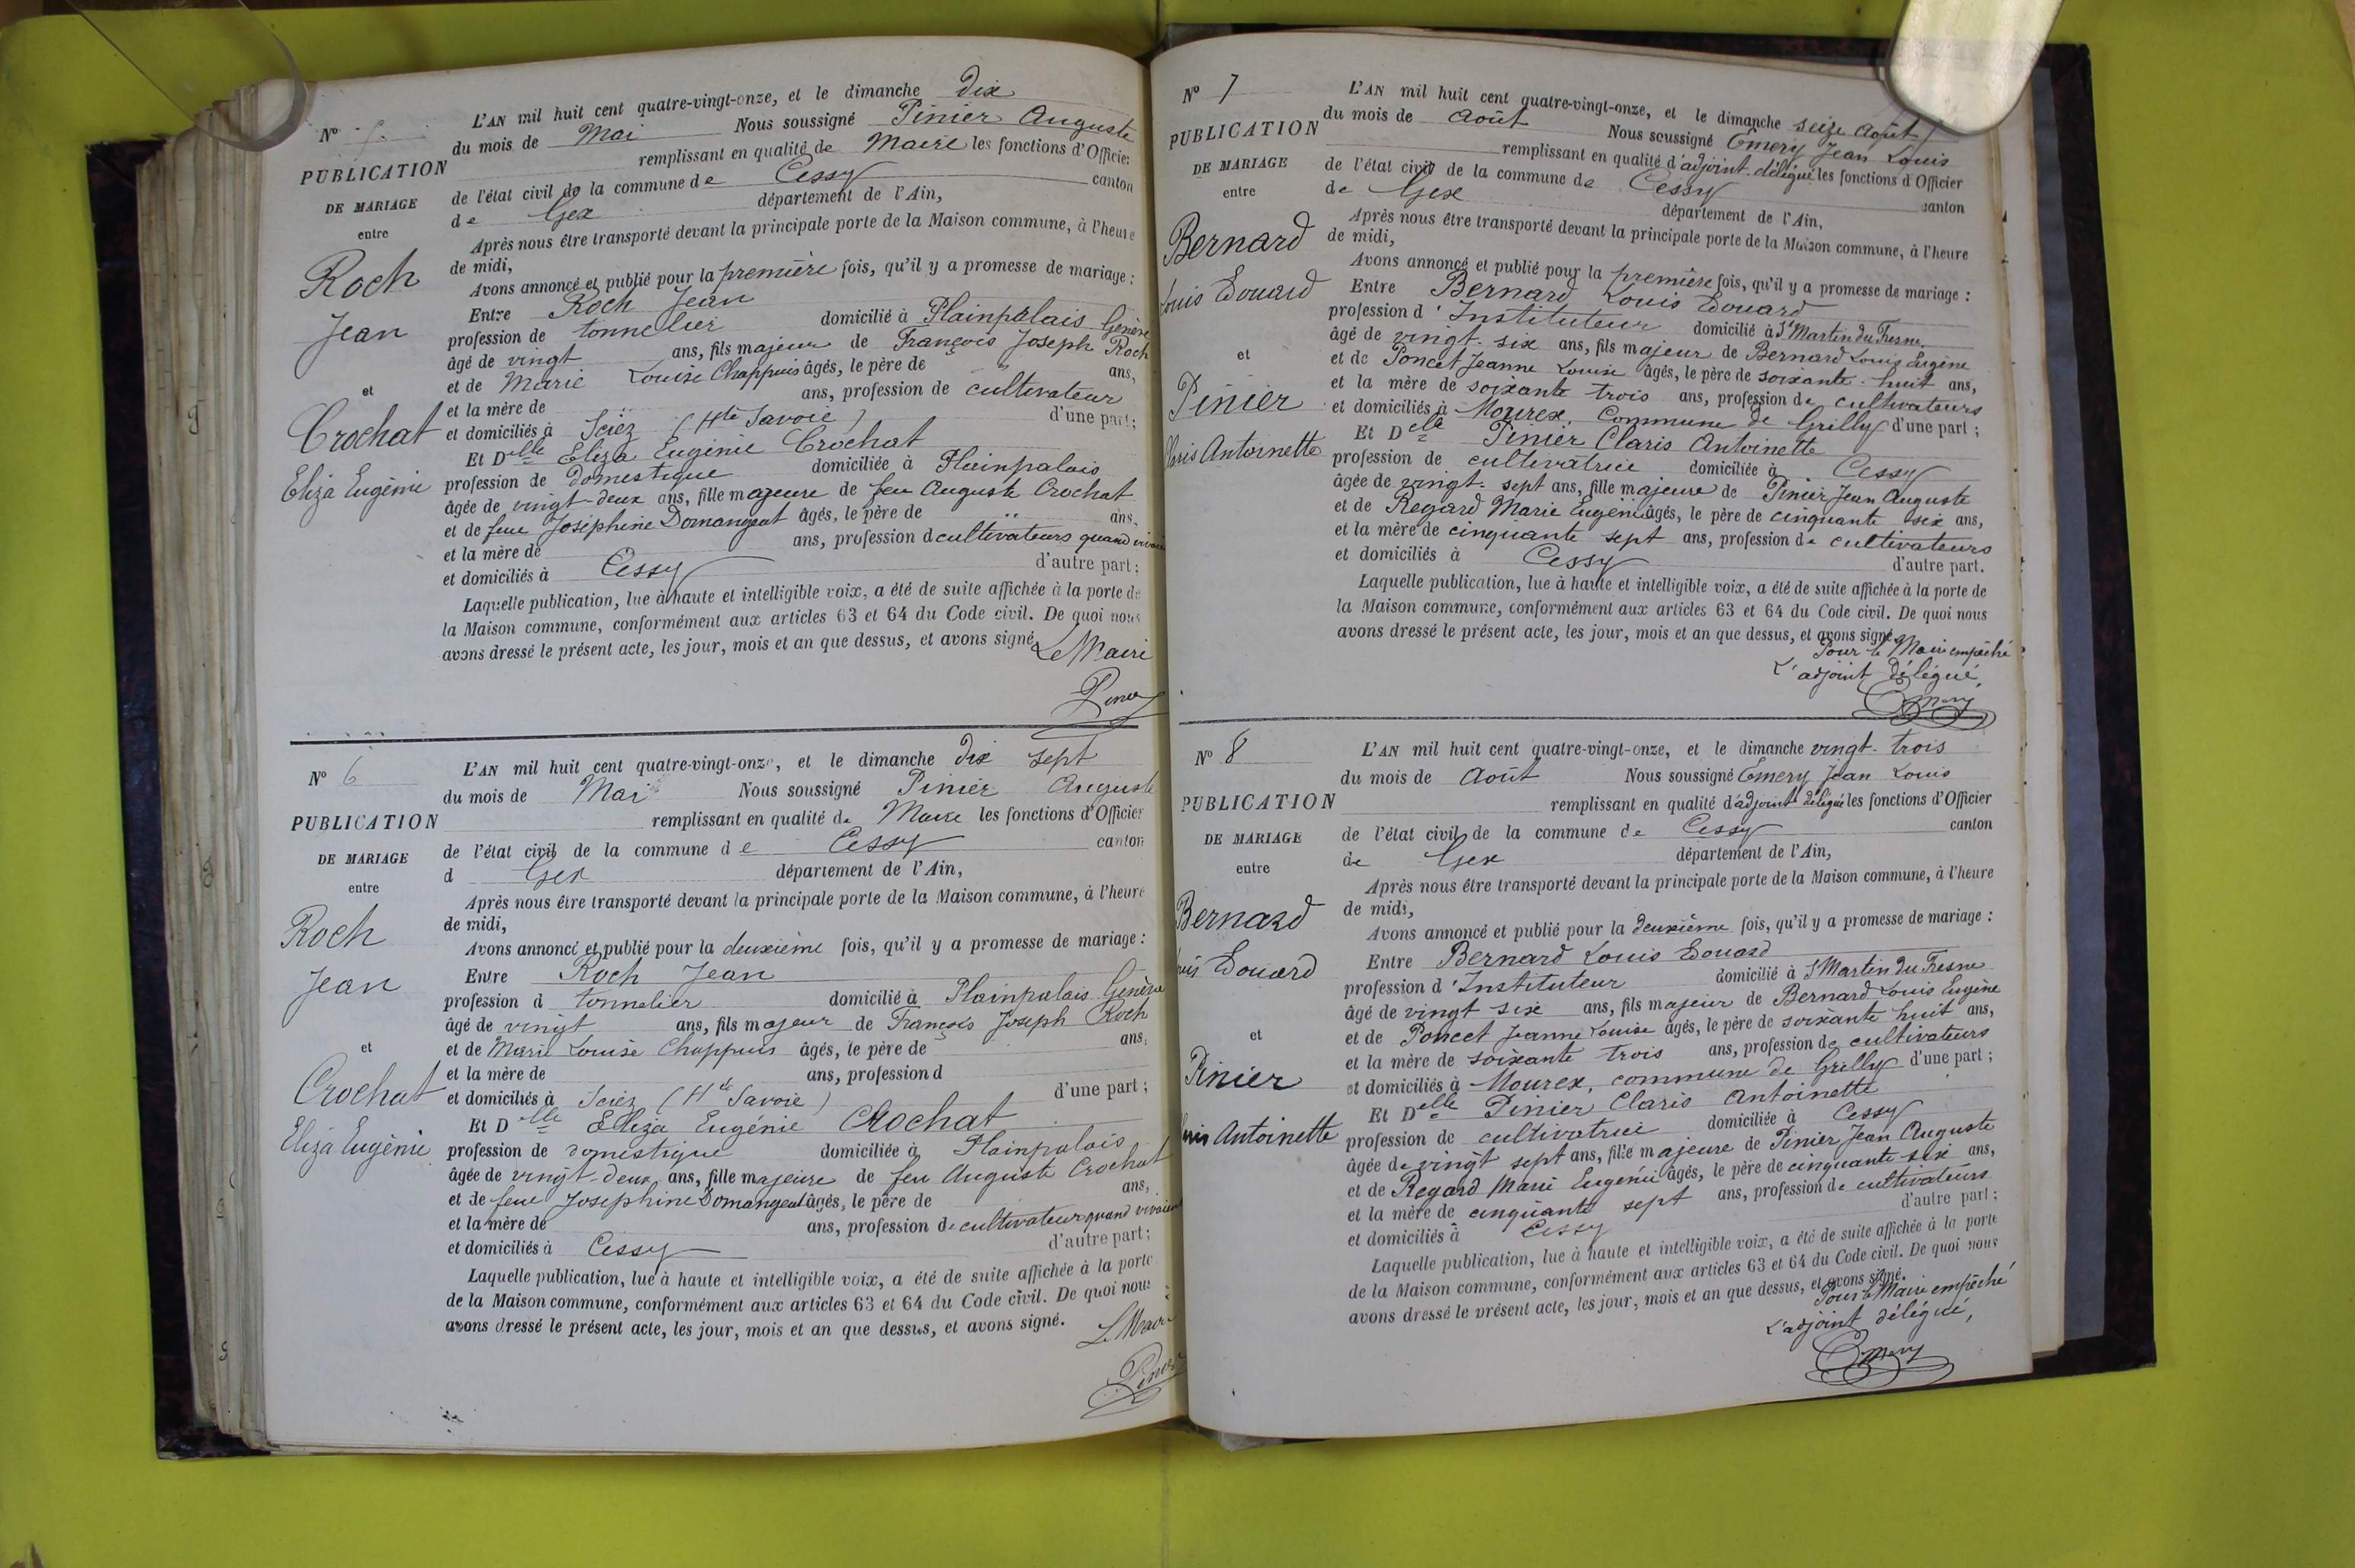 N° 5
PUBLICATION
DE MARIAGE
entre
Roch
Jean
et
Crochat
Eliza Eugénie
L'AN mil huit cent quatre-vingt-onze, et le dimanche Dix
du mois de Mai Nous soussigné Pinier Auguste
remplissant en qualité de Maire les fonctions d'Officier
de l'état civil de la commune de Cessy canton
de Gex département de l'Ain,
Après nous être transporté devant la principale porte de la Maison commune, à l'heure
de midi,
Avons annoncé et publié pour la première fois, qu'il y a promesse de mariage :
Entre Roch Jean
profession de tonnelier domicilié à Plainpalais Genève
âgé de vingt ans, fils majeur de François Joseph Roch
et de Marie Louise Chappuis âgés, le père de " ans,
et la mère de ans, profession de cultivateur
et domiciliés à Sciez (Hte Savoie) d'une part;
Et Delle Eliza Eugénie Crochat
profession de Domestique domiciliée à Plainpalais
âgée de vingt-deux ans, fille majeure de feu Auguste Crochat
et de feue Joséphine Domangeat âgés, le père de " ans,
et la mère de ans, profession d cultivateurs quand vivaient
et domiciliés à Cessy d'autre part;
Laquelle publication, lue à haute et intelligible voix, a été de suite affichée à la porte de
la Maison commune, conformément aux articles 63 et 64 du Code civil. De quoi nous
avons dressé le présent acte, les jour, mois et an que dessus, et avons signé.
Le Maire
Pinier
N° 6
PUBLICATION
DE MARIAGE
entre
Roch
Jean
et
Crochat
Eliza Eugénie
L'AN mil huit cent quatre-vingt-onze, et le dimanche Dix sept
du mois de Mai Nous soussigné Pinier Auguste
remplissant en qualité de Maire les fonctions d'Officier
de l'état civil de la commune de Cessy canton
d Gex département de l'Ain,
Après nous être transporté devant la principale porte de la Maison commune, à l'heure
de midi,
Avons annoncé et publié pour la deuxième fois, qu'il y a promesse de mariage :
Entre Roch Jean
profession d tonnelier domicilié à Plainpalais Genève
âgé de vingt ans, fils majeur de François Joseph Roch
et de Marie Louise Chappuis âgés, le père de ans,
et la mère de ans, profession d
et domiciliés à Sciez (Hte Savoie) d'une part ;
Et Delle Eliza Eugénie Crochat
profession de domestique domiciliée à Plainpalais
âgée de vingt-deux ans, fille majeure de feu Auguste Crochat
et de feue Josephine Domangeat âgés, le père de ans,
et la mère de ans, profession de cultivateurs quand vivaient
et domiciliés à Cessy d'autre part;
Laquelle publication, lue à haute et intelligible voix, a été de suite affichée à la porte
de la Maison commune, conformément aux articles 63 et 64 du Code civil. De quoi nous
avons dressé le présent acte, les jour, mois et an que dessus, et avons signé.
Le Maire
Pinier
N° 7
PUBLICATION
DE MARIAGE
entre
Bernard
Louis Edouard
et
Pinier
Claris Antoinette
L'AN mil huit cent quatre-vingt-onze, et le dimanche seize Août
du mois de Août Nous soussigné Emery Jean Louis
remplissant en qualité d'adjoint délégué les fonctions d'Officier
de l'état civil de la commune de Cessy canton
de Gex département de l'Ain,
Après nous être transporté devant la principale porte de la Maison commune, à l'heure
de midi,
Avons annoncé et publié pour la première fois, qu'il y a promesse de mariage :
Entre Bernard Louis Edouard
profession d'Instituteur domicilié à St Martin du Fresne
âgé de vingt-six ans, fils majeur de Bernard Louis Eugène
et de Poncet Jeanne Louise âgés, le père de soixante-huit ans,
et la mère de soixante trois ans, profession de cultivateurs
et domiciliés à Mourex, commune de Grilly d'une part ;
Et Delle Pinier Claris Antoinette
profession de cultivatrice domiciliée à Cessy
âgée de vingt-sept ans, fille majeure de Pinier Jean Auguste
et de Regard Marie Eugénie âgés, le père de cinquante six ans,
et la mère de cinquante sept ans, profession de cultivateurs
et domiciliés à Cessy d'autre part.
Laquelle publication, lue à haute et intelligible voix, a été de suite affichée à la porte de
la Maison commune, conformément aux articles 63 et 64 du Code civil. De quoi nous
avons dressé le présent acte, les jour, mois et an que dessus, et avons signé.
Pour le Maire empêché
L'adjoint délégué,
Emery
N° 8
PUBLICATION
DE MARIAGE
entre
Bernard
Louis Edouard
et
Pinier
Claris Antoinette
L'AN mil huit cent quatre-vingt-onze, et le dimanche vingt-trois
du mois de Août Nous soussigné Emery Jean Louis
remplissant en qualité d'adjoint délégué les fonctions d'Officier
de l'état civil de la commune de Cessy canton
de Gex département de l'Ain,
Après nous être transporté devant la principale porte de la Maison commune, à l'heure
de midi,
Avons annoncé et publié pour la deuxième fois, qu'il y a promesse de mariage :
Entre Bernard Louis Edouard
profession d'Instituteur domicilié à St Martin du Fresne
âgé de vingt six ans, fils majeur de Bernard Louis Eugène
et de Poncet Jeanne Louise âgés, le père de soixante huit ans,
et la mère de soixante trois ans, profession de cultivateurs
et domiciliés à Mourex, commune de Grilly d'une part ;
Et Delle Pinier Claris Antoinette
profession de cultivatrice domiciliée à Cessy
âgée de vingt sept ans, fille majeure de Pinier Jean Auguste
et de Regard Marie Eugénie âgés, le père de cinquante-six ans,
et la mère de cinquante sept ans, profession de cultivateurs
et domiciliés à Cessy d'autre part ;
Laquelle publication, lue à haute et intelligible voix, a été de suite affichée à la porte
de la Maison commune, conformément aux articles 63 et 64 du Code civil. De quoi nous
avons dressé le présent acte, les jour, mois et an que dessus, et avons signé.
Pour le Maire empêché
L'adjoint délégué,
Emery